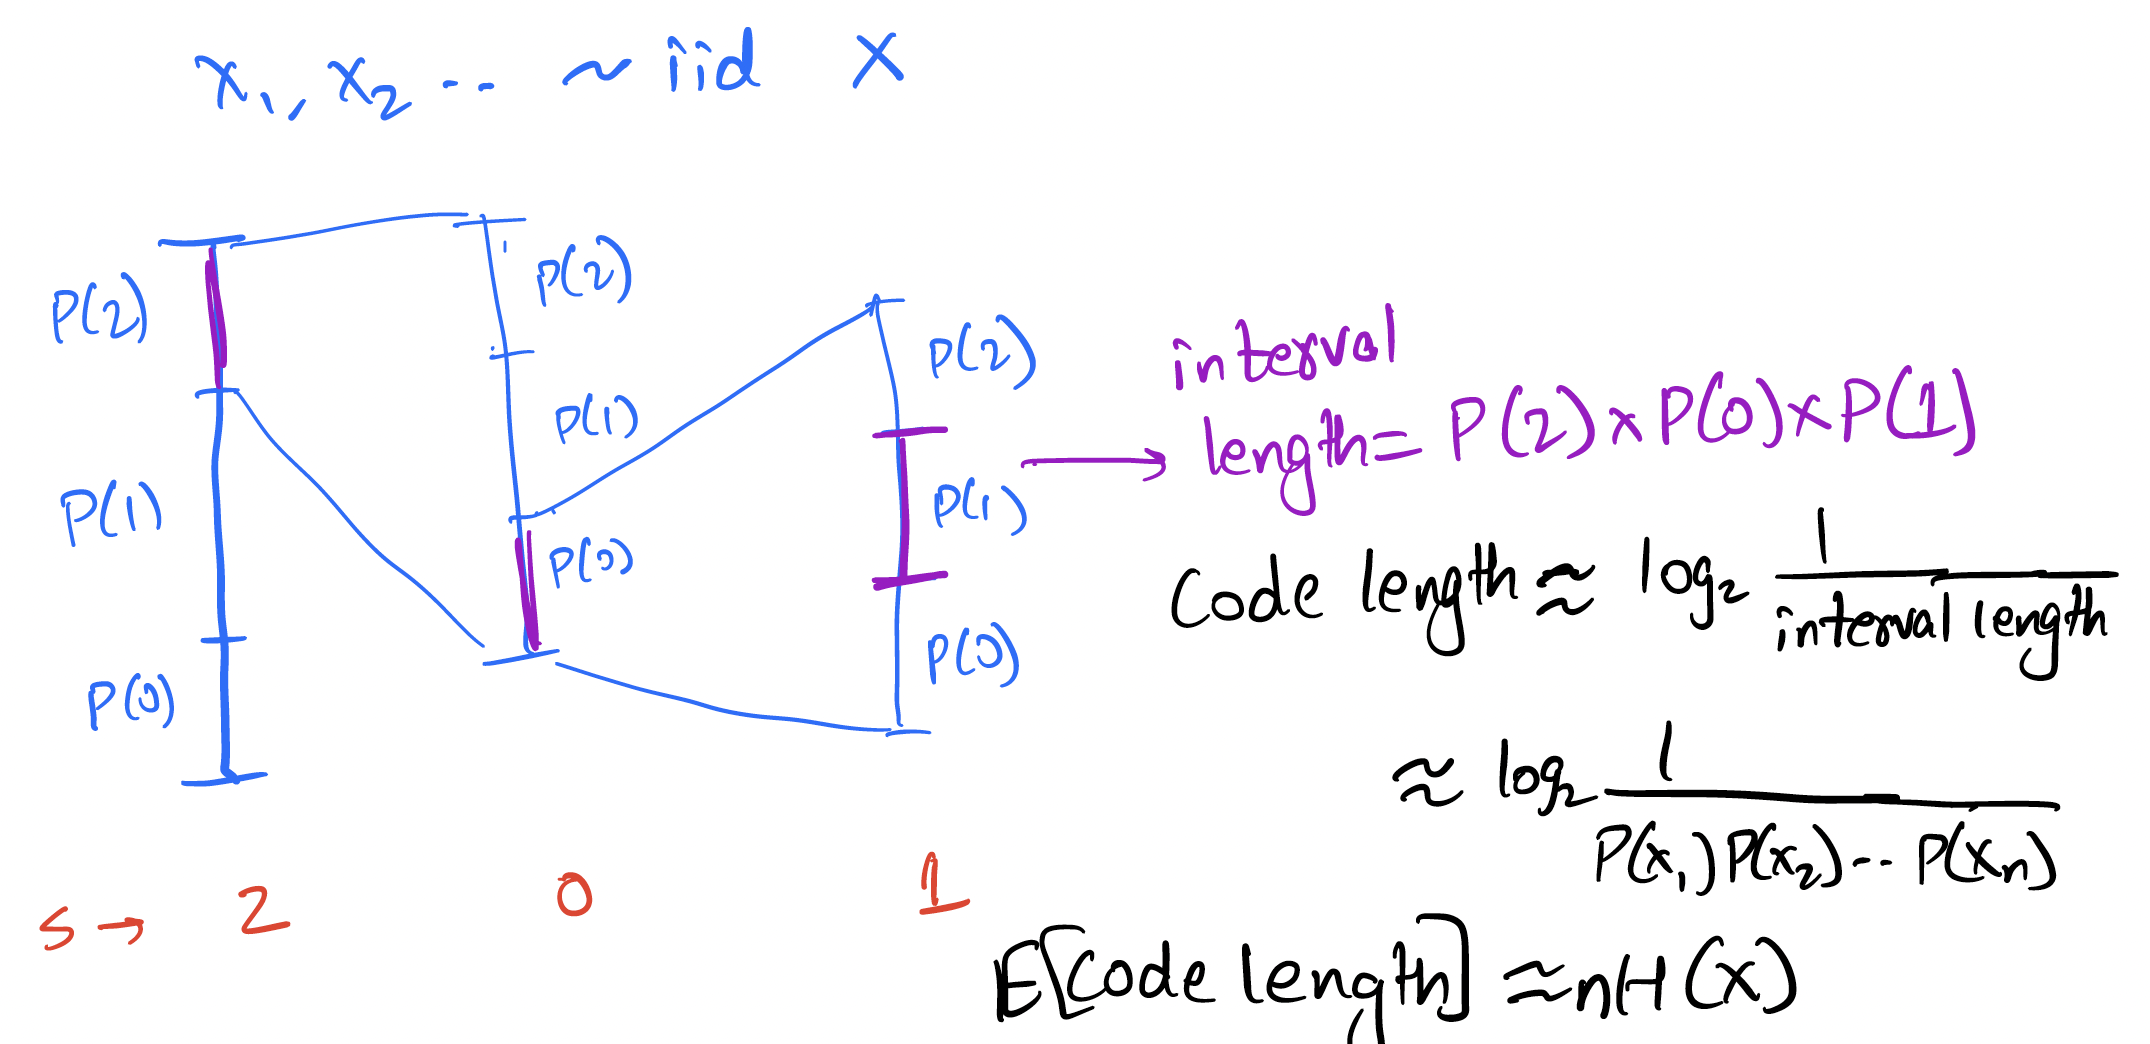 x₁, x₂ .. ~ iid X
P(2)
P(1)
P(0)
P(2)
P(1)
P(0)
P(2)
P(1)
P(0)
interval
length = P(2) × P(0) × P(1)
Code length ≈ log₂ 1/interval length
≈ log₂ 1/P(x₁)P(x₂)-- P(xₙ)
E[Code length] ≈ nH(X)
S → 2 0 1